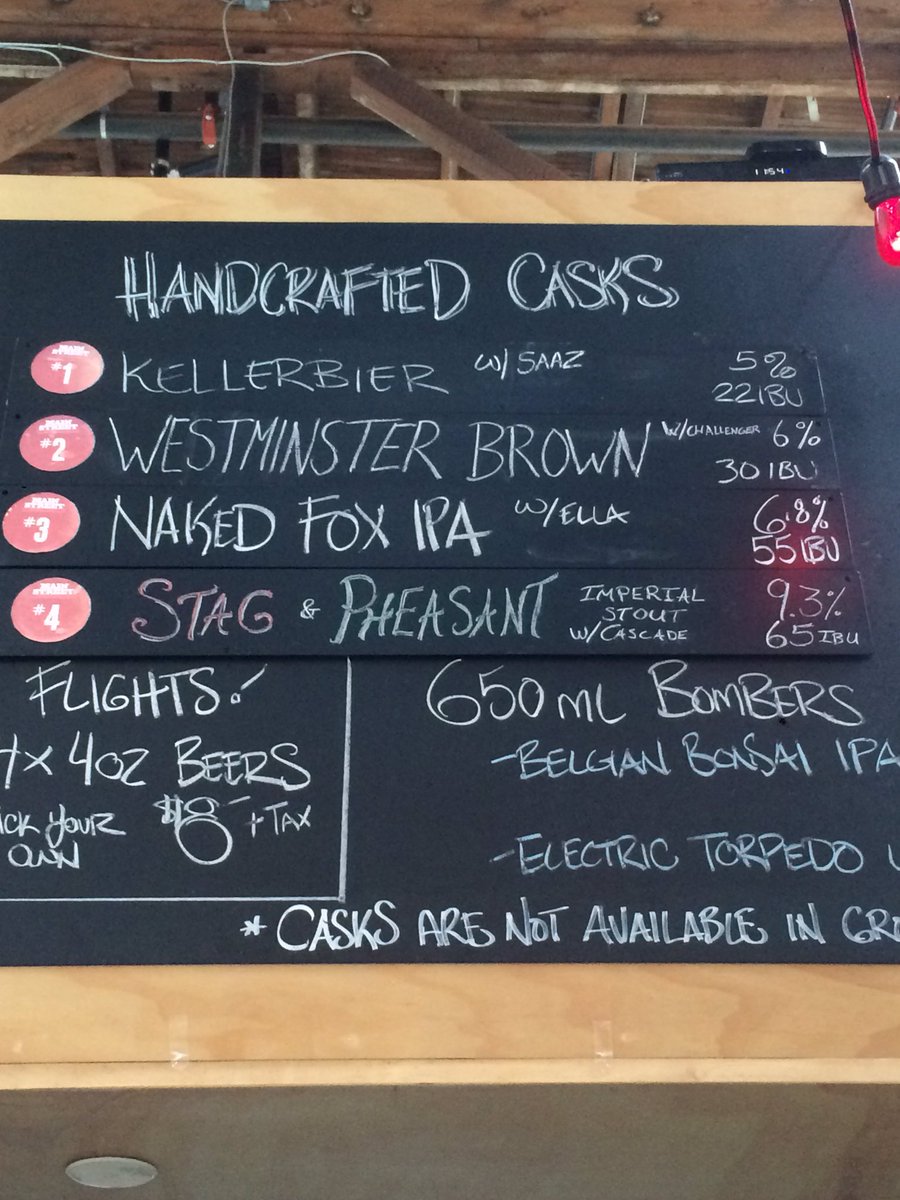 HANDCRAFTED CASKS
MAIN STREET #1 KELLERBIER W/ SAAZ 5% 22 IBU
MAIN STREET #2 WESTMINSTER BROWN W/CHALLENGER 6% 30 IBU
MAIN STREET #3 NAKED FOX IPA W/ELLA 6.8% 55 IBU
MAIN STREET #4 STAG & PHEASANT IMPERIAL STOUT W/CASCADE 9.3% 65 IBU
FLIGHTS!
4 x 4oz BEERS
YOUR OWN $8 + TAX
650 mL BOMBERS
- BELGIAN BONSAI IPA
- ELECTRIC TORPEDO
* CASKS ARE NOT AVAILABLE IN